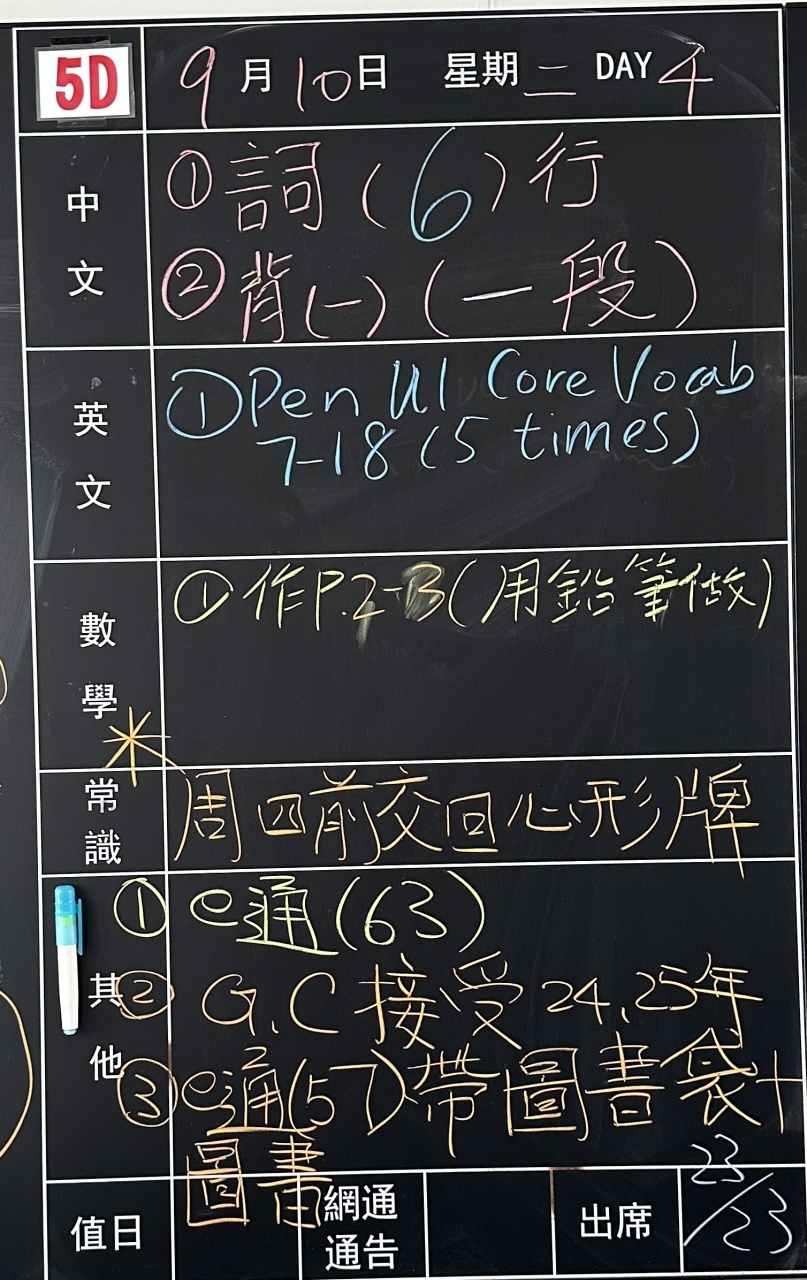 5D 9月10日 星期二 DAY 4
中文
①詞(6)行
②背(一)(一段)
英文
①Pen U1 Core Vocab
7-18 (5 times)
數學
①作P.2-3(用鉛筆做)
*
常識
周四前交回心形牌
其他
①e通(63)
②G.C接受24,25年
③e通(57)帶圖書袋+
圖書
值日 網通通告 出席 23/23